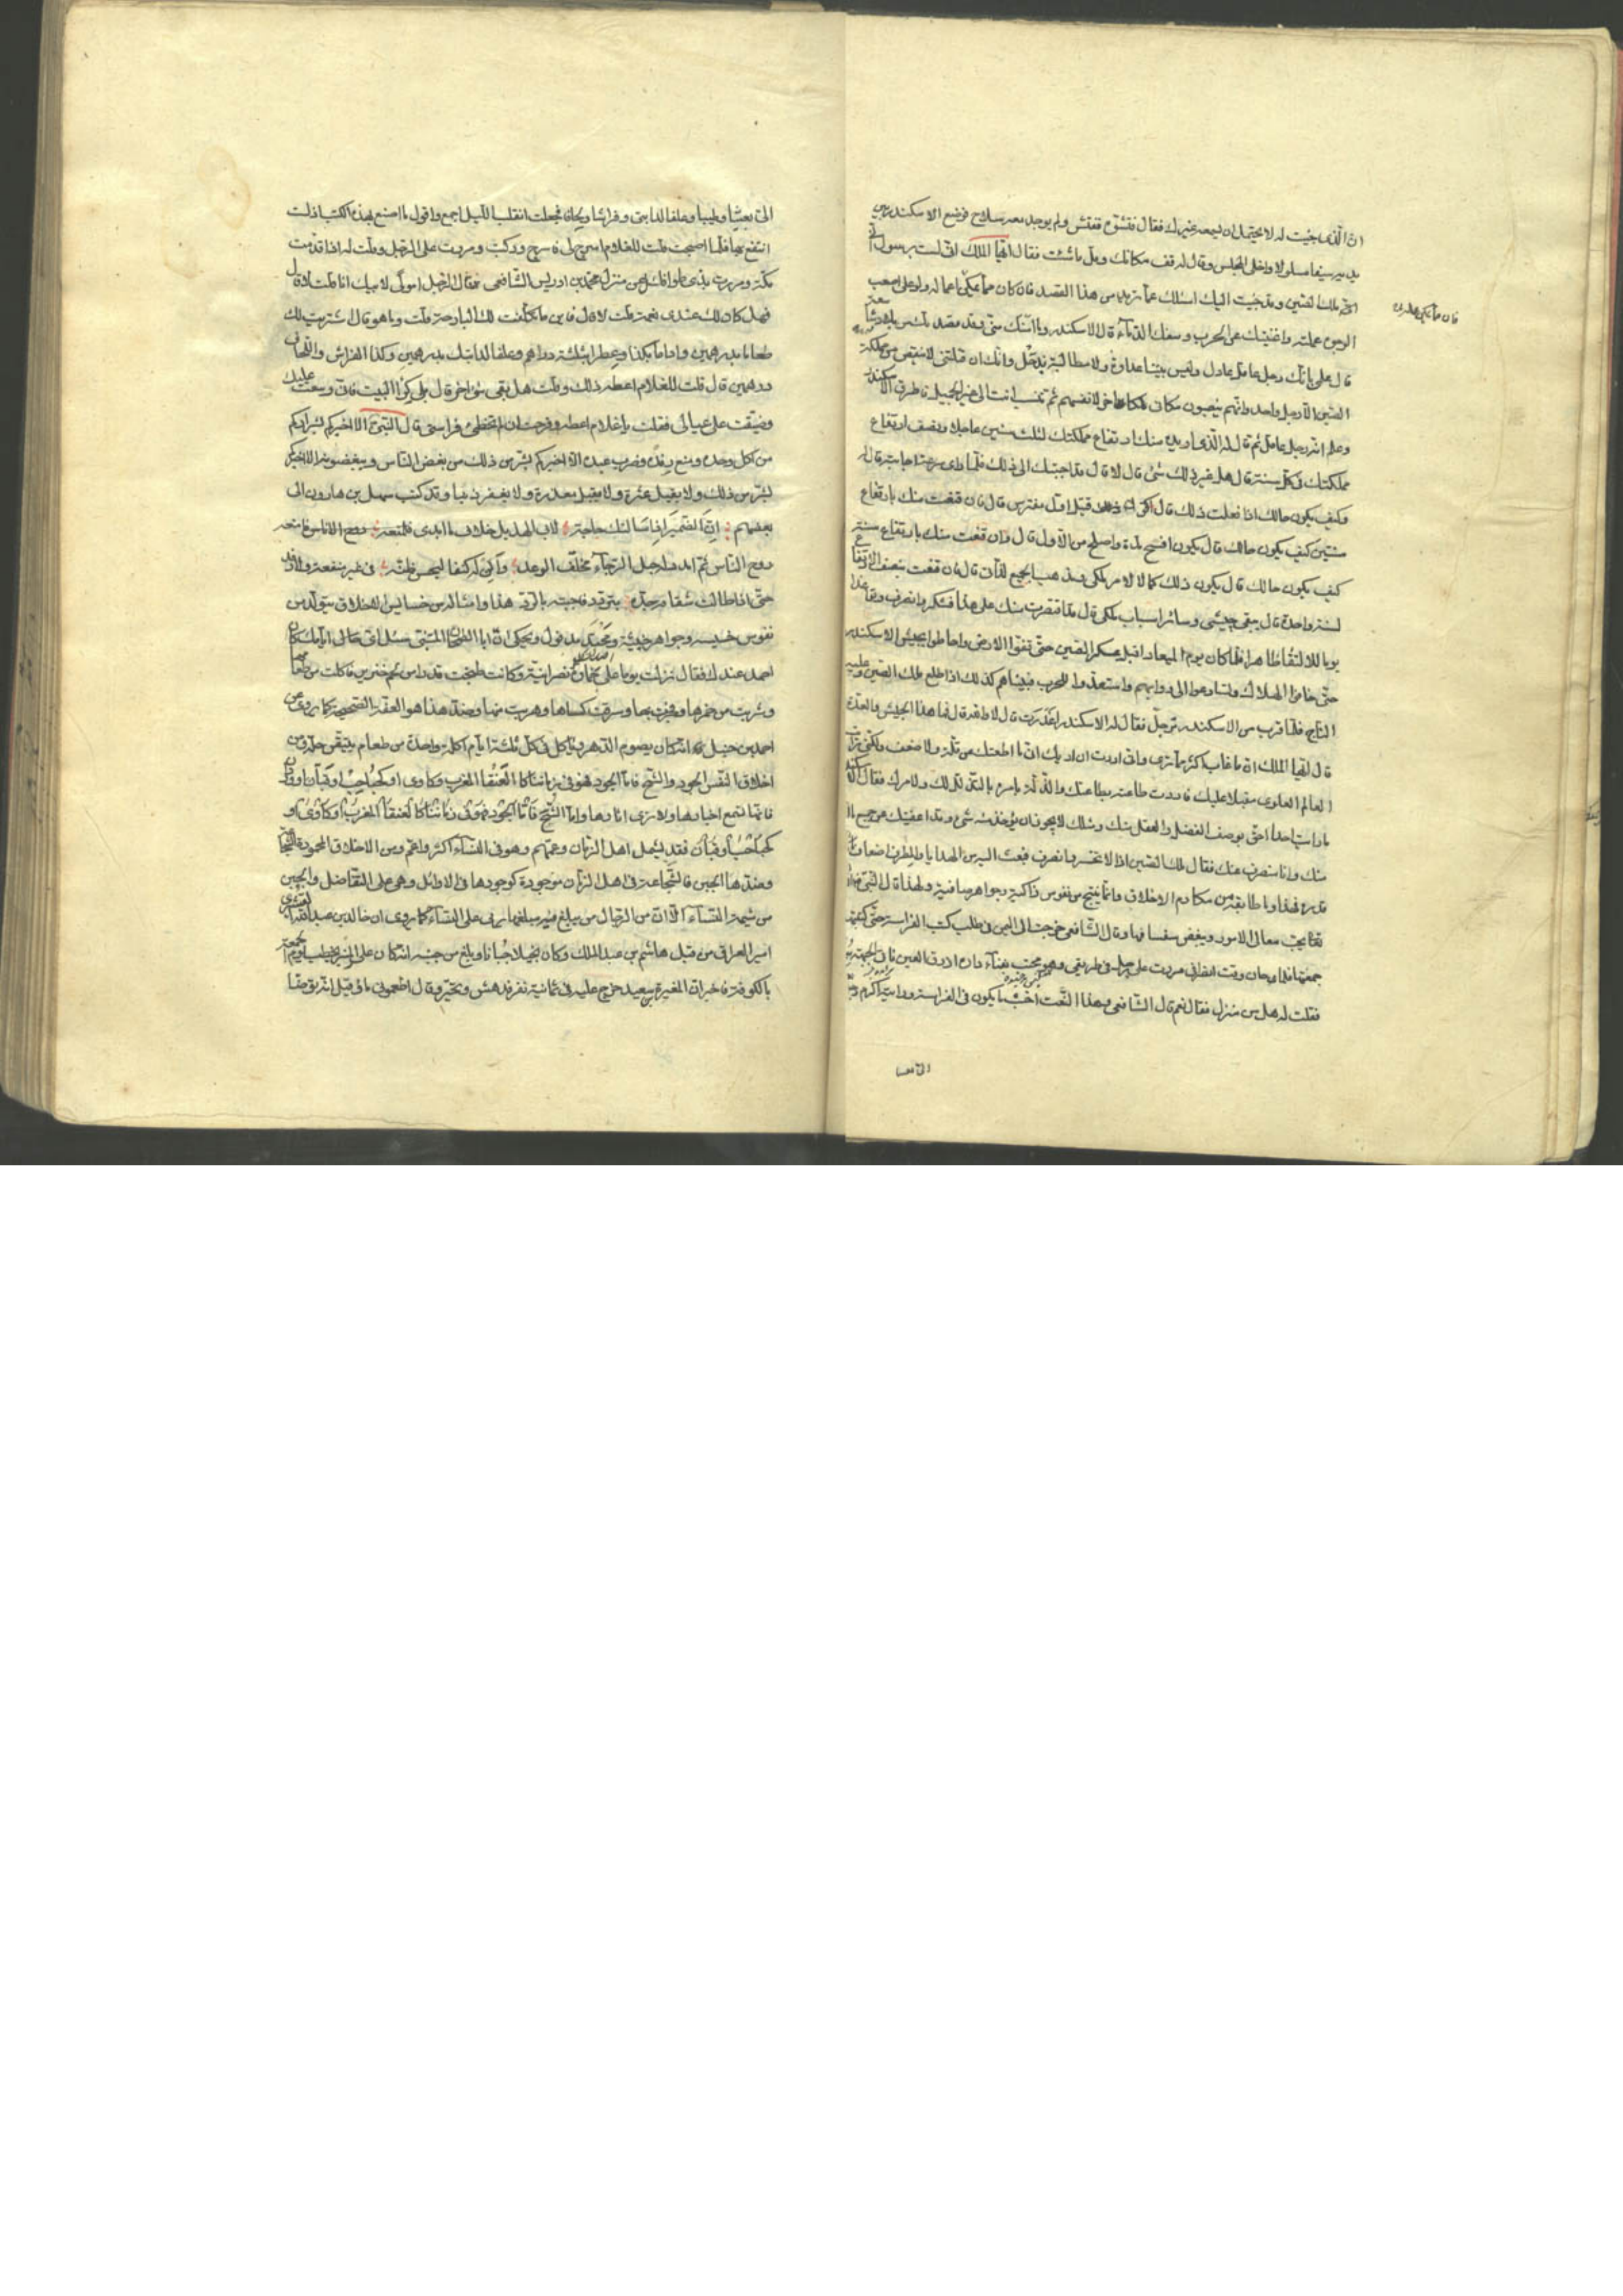 ان الذى جئت له لا يحتمل ان يسمعه غيرك فقال فتشوه ففتش ولم يوجد معه سلاح فوضع الاسكندر بين
يديه سيفا مسلولا واخلى المجلس وقال له قف مكانك وقل ما شئت فقال ايها الملك انى لست برسول
انى ملك الصين وقد جئت اليك اسئلك عما تريد من هذا القصد فان كان مما يمكن اعماله ولو على اصعب
الوجوه عملته واغنيتك عن الحرب وسفك الدماء قال الاسكندر وما آمنك منى وقد
قال على بانك رجل عاقل عادل وليس بيننا عداوة ولا مطالبة بذحل وانك ان قتلتنى
الصين الا رجل واحد وانهم ينصبون مكانى ثم تنسب انت الى غير الجميل فاطرق الاسكندر
وعلم انه رجل عاقل ثم قال له الذى اريده منك ارتفاع مملكتك لثلث سنين عاجلا ونصف ارتفاع
مملكتك فى كل سنة قال هل غير ذلك شئ قال لا قال قد اجبتك الى ذلك فلما رأى سرعة اجابته قال له
وكيف يكون حالك اذا فعلت ذلك قال اكون قتيل اول مفترس قال فان قنعت منك بارتفاع
سنتين كيف يكون حالك قال يكون افسح مدة واصلح من الاول قال فان قنعت منك بارتفاع سنة
كيف يكون حالك قال يكون ذلك كمالا لامر ملكى ويذهب بجميع لذاتى قال فان قنعت بنصف الارتفاع
لسنة واحدة قال يبقى جيشى وسائر اسباب ملكى قال قد اقتصرت منك على هذا فشكر وانصرف
فلما كان يوم الميعاد اقبل عسكر الصين حتى ملؤا الارض واحاطوا بجيش الاسكندر
حتى خافوا الهلاك وتسارعوا الى دوابهم واستعدوا للحرب فبيناهم كذلك اذا طلع ملك الصين وعليه
التاج فلما قرب من الاسكندر ترجل فقال له الاسكندر اغدرت قال لا والله قال فما هذا الجيش والعدة
قال ايها الملك ان ما غاب اكثر مما ترى وانى اردت ان اريك انى ما اطعتك من قلة ولا ضعف ولكنى رأيت
العالم العلوى مقبلا عليك فاردت طاعته بطاعتك والذلة بامره بالتذلل لك ولامرك فقال الاسكندر
ما رأيت احدا احق بوصف الفضل والعقل منك ومثلك لا يجوز ان يؤخذ منه شئ وقد اعفيتك من جميع ما
منك وانا منصرف عنك فقال ملك الصين اذا لا تخسر وانصرف فبعث اليه من الهدايا والطرف اضعاف
قدره فهذا وما طابقه من مكارم الاخلاق وانما ينتج من نفوس زاكية وجواهر صافية ولهذا قال النبى
تعالى يحب معالى الامور ويبغض سفسافها وقال الشافعى خرجت الى اليمن فى طلب كتب الفراسة حتى كتبتها
جمعتها فلما حان وقت انصرافى مررت على رجل فى طريقى وهو محتب بفناء داره ازرق العين ناتى الجبهة
فقلت له هل من منزل فقال نعم قال الشافعى وهذا النعت اخبث ما يكون فى الفراسة
الى بعشاء وطيب وعلف لدابتى وفراش ولحاف فجعلت اتقلب الليل اجمع واقول ما اصنع بهذه الكتب اذ لست
انتفع بها فلما اصبحت قلت للغلام اسرج لى فاسرج وركبت ومررت على الرجل وقلت له اذا قدمت
مكة ومررت بذى طوى فاسئل عن منزل محمد بن ادريس الشافعى فقال الرجل امولى لابيك انا قلت لا قال
فهل كان لك عندى نعمة قلت لا قال فاين ما تكلفت لك البارحة قلت وما هو قال اشتريت لك
طعاما بدرهمين واداما بكذا وعطرا بثلثة دراهم وعلفا لدابتك بدرهمين وكذا الفراش واللحاف
درهمين قال قلت للغلام اعطه ذلك وقلت هل بقى شئ اخر قال بلى كرا البيت فانى وسعت عليك
وضيقت على عيالى فقلت يا غلام اعطه وفرحت ان فراستى قال النبى الا اخبركم بشراركم
من اكل وحده ومنع رفده وضرب عبده الا اخبركم بشر من ذلك من يبغض الناس ويبغضونه الا اخبركم
بشر من ذلك من لا يقيل عثرة ولا يقبل معذرة ولا يغفر ذنبا وقد كتب سهل بن هارون الى
بعضهم ان الضمير اذا سألتك حاجة لابى الهذيل خلاف ما ابدى فامنعه
روح الناس ثم امدد لرجل الرجاء مخلف الوعد والن له كنفا ليحسن ظنه فى غير منفعة ولا رفد
حتى اذا طالت شقاوة جده بتردد فاجبه بالرد هذا وامثاله من خسايس الاخلاق يتولد من
نفوس خسيسة وجواهر خبيثة ويحكى ان ابا سئل
احمد عندك فقال نزلت يوما على نصرانية وكانت طبخت قدرا من لحم خنزير فاكلت من طعامها
وشربت من خمرها وفجرت بها وسرقت كساها وهربت منها وضد هذا هو العقة الصحيحة كما روى عن
احمد بن حنبل انه كان يصوم الدهر ويأكل فى كل ثلثة ايام اكلة واحدة من طعام
اخلاق النفس الجود والشح فاما الجود فهو فى زماننا كالعنقا المغرب
فانما تسمع اخبارها ولا نرى اثارها واما الشح
فقد يشمل اهل الزمان وعمهم وهو فى النساء اكثر واعم ومن الاخلاق المحمودة الشجاعة
وضدها الجبن فالشجاعة فى اهل الزمان موجودة كوجودها فى الاوائل وهى على التفاضل والجبن
من شيمة النساء الا ان من الرجال من يبلغ فيه مبلغا يربى على النساء كما روى ان خالد بن عبد الله القسرى
امير العراق من قبل هاشم بن عبد الملك وكان بخيلا جبانا وبلغ من جبنه انه كان على المنبر يخطب يوم الجمعة
بالكوفة فاخبر ان المغيرة بن سعيد خرج عليه فى ثمانية نفر فدهش وتحير وقال اطعمونى ماء